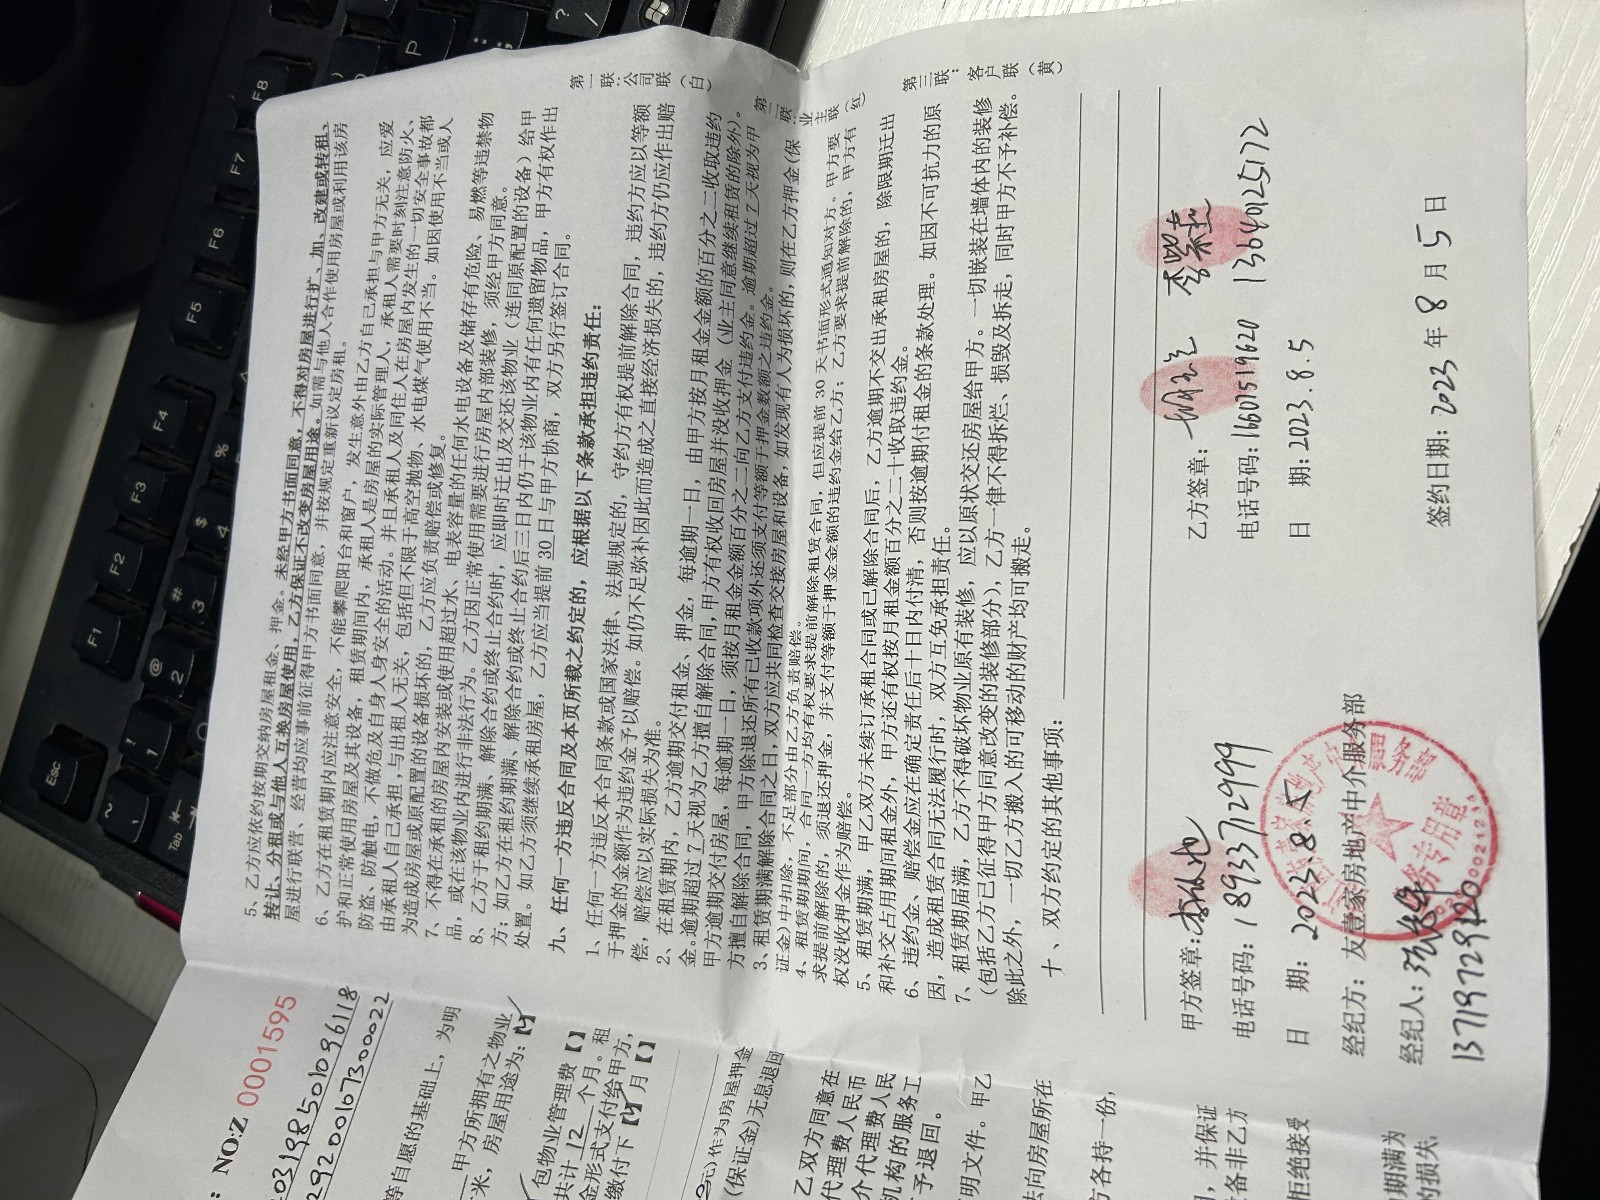 5、乙方应依约按期交纳房屋租金、押金。未经甲方书面同意，不得对房屋进行扩、加、改建或转租、
转让、分租或与他人互换房屋使用，乙方保证不改变房屋用途。如需与他人合作使用房屋或利用该房
屋进行联营、经营均应事前征得甲方书面同意，并按规定重新议定房租。
6、乙方在租赁期内应注意安全，不能攀爬阳台和窗户，发生意外由乙方自己承担与甲方无关，应爱
护和正常使用房屋及其设备，租赁期间内，承租人是房屋的实际管理人，承租人需要时刻注意防火、
防盗、防触电，不做危及自身人身安全的活动。并且承租人及同住人在房屋内发生的一切安全事故都
由承租人自己承担，与出租人无关，包括但不限于高空抛物、水电煤气使用不当。如因使用不当或人
为造成房屋或原配置的设备损坏的，乙方应负责赔偿或修复。
7、不得在承租的房屋内安装或使用超过水、电表容量的任何水电设备及储存有危险、易燃等违禁物
品，或在该物业内进行非法行为。乙方因正常使用需要进行房屋内部装修，须经甲方同意。
8、乙方于租约期满、解除合约或终止合约时，应即时迁出及交还该物业（连同原配置的设备）给甲
方；如乙方在租约期满、解除合约或终止合约后三日内仍于该物业内有任何遗留物品，甲方有权作出
处置。如乙方须继续承租房屋，乙方应当提前 30 日与甲方协商，双方另行签订合同。
九、任何一方违反合同及本页所载之约定的，应根据以下条款承担违约责任：
1、任何一方违反本合同条款或国家法律、法规规定的，守约方有权提前解除合同，违约方应以等额
于押金的金额作为违约金予以赔偿。如仍不足弥补因此而造成之直接经济损失的，违约方仍应作出赔
偿，赔偿应以实际损失为准。
2、在租赁期内，乙方逾期交付租金、押金，每逾期一日，由甲方按月租金金额的百分之二收取违约
金。逾期超过 7 天视为乙方擅自解除合同，甲方有权收回房屋并没收押金（业主同意继续租赁的除外）。
甲方逾期交付房屋，每逾期一日，须按月租金金额百分之二向乙方支付违约金。逾期超过 7 天视为甲
方擅自解除合同，甲方除退还所有已收款项外还须支付等额于押金数额之违约金。
3、租赁期满解除合同之日，双方应共同检查交接房屋和设备，如发现有人为损坏的，则在乙方押金（保
证金）中扣除，不足部分由乙方负责赔偿。
4、租赁期期间，合同一方均有权要求提前解除租赁合同，但应提前 30 天书面形式通知对方。甲方要
求提前解除的，须退还押金，并支付等额于押金金额的违约金给乙方；乙方要求提前解除的，甲方有
权没收押金作为赔偿。
5、租赁期满，甲乙双方未续订承租合同或已解除合同后，乙方逾期不交出承租房屋的，除限期迁出
和补交占用期间租金外，甲方还有权按月租金额百分之二十收取违约金。
6、违约金、赔偿金应在确定责任后十日内付清，否则按逾期付租金的条款处理。如因不可抗力的原
因，造成租赁合同无法履行时，双方互免承担责任。
7、租赁期届满，乙方不得破坏物业原有装修，应以原状交还房屋给甲方。一切嵌装在墙体内的装修
（包括乙方已征得甲方同意改变的装修部分），乙方一律不得拆烂、损毁及拆走，同时甲方不予补偿。
除此之外，一切乙方搬入的可移动的财产均可搬走。
十、双方约定的其他事项：
第一联：公司联（白）
第二联：业主联（红）
第三联：客户联（黄）
甲方签章：
电话号码：18933712999
日 期：2023.8.5
经纪方：友壹家房地产中介服务部
经纪人：
13719729720
乙方签章： 李紫燕
电话号码：16601519620 13640125172
日 期：2023.8.5
签约日期：2023 年 8 月 5 日
服务部
务专用章
NO:Z 0001595
03198501096118
29200107300022
等自愿的基础上，为明
甲方所拥有之物业
米，房屋用途为：【✓】
包物业管理费【】
共计 12 个月。租
金形式支付给甲方，
缴付下【✓】月【】
元）作为房屋押金
（保证金）无息退回
乙双方同意在
代理费人民币
介代理费人民
机构的服务工
予退回。
明文件。甲乙
法向房屋所在
方各持一份，
，并保证
备非乙方
拒绝接受
期满为
的损失